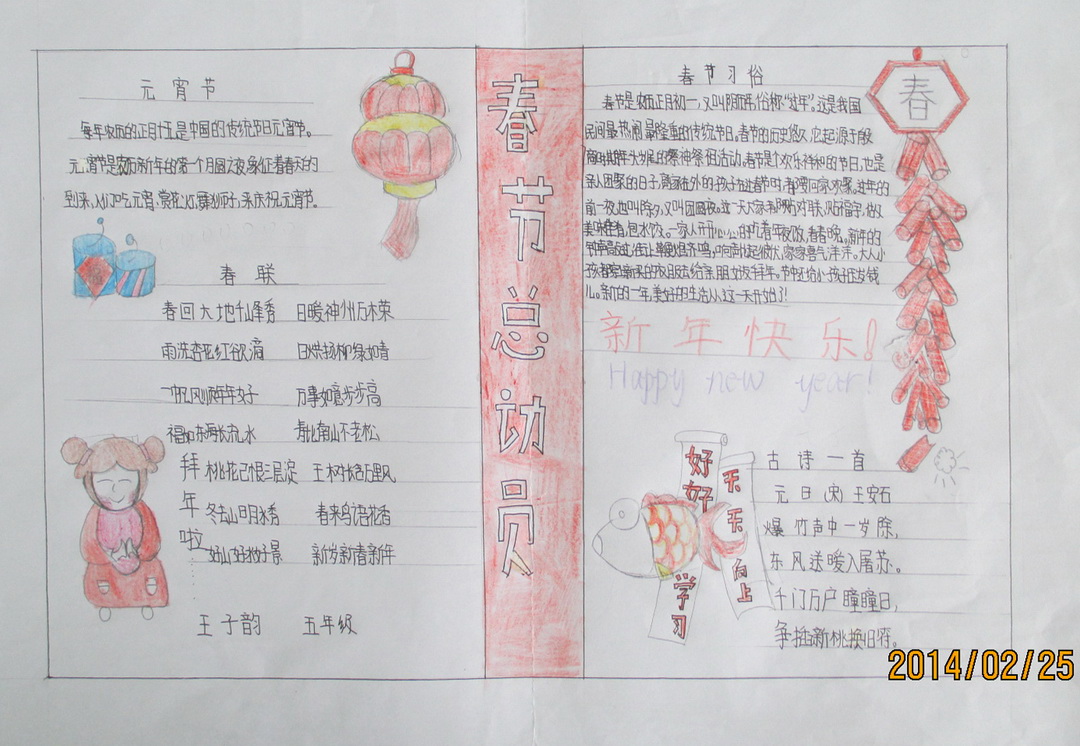 元宵节
每年农历的正月十五是中国的传统节日元宵节。
元宵节是农历新年的第一个月圆之夜,象征着春天的
到来,人们吃元宵、赏花灯、舞狮子,来庆祝元宵节。
春联
春回大地千山秀 日暖神州万木荣
雨洗杏花红欲滴 日烘杨柳绿如青
一帆风顺年年好 万事如意步步高
福如东海长流水 寿比南山不老松
桃花已恨三层淀 玉树
冬去山明水秀 春来鸟语花香
好山好水好景 新岁新春新年
拜年啦
王子韵 五年级
春节总动员
春节习俗
春节是农历正月初一,又叫阴历年,俗称“过年”。这是我国
民间最热闹最隆重的传统节日。春节的历史悠久,它起源于殷
商时期年头岁尾的祭神祭祖活动。春节是个欢乐祥和的节日,也是
亲人团聚的日子,离家在外的孩子在过春节时,都要回家欢聚。过年的
前一夜,也叫除夕,又叫团圆夜。这一天大家都贴对联,贴福字,做
美味佳肴,包水饺。一家人开开心心的吃着年夜饭,看春晚。新年的
钟声敲过,街上鞭炮齐鸣,响声此起彼伏,家家喜气洋洋。大人小
孩都穿新买的衣服去给亲朋好友拜年。节中还给小孩压岁钱
儿。新的一年,美好的生活从这一天开始了!
春
新年快乐!
Happy new year!
好好学习
天天向上
古诗一首
元日 (宋) 王安石
爆竹声中一岁除,
东风送暖入屠苏。
千门万户瞳瞳日,
争插新桃换旧符。
2014/02/25